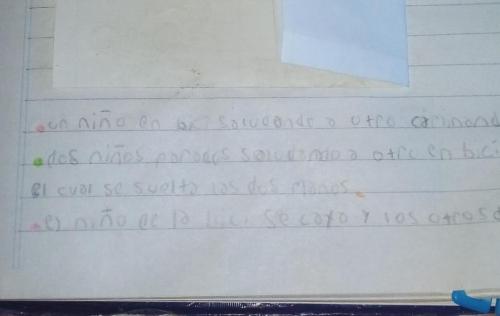 un niño en bici saludando a otro caminand
dos niños parados saludando a otro en bici
el cual se suelta las dos manos.
el niño de la bici se cayo y los otros d